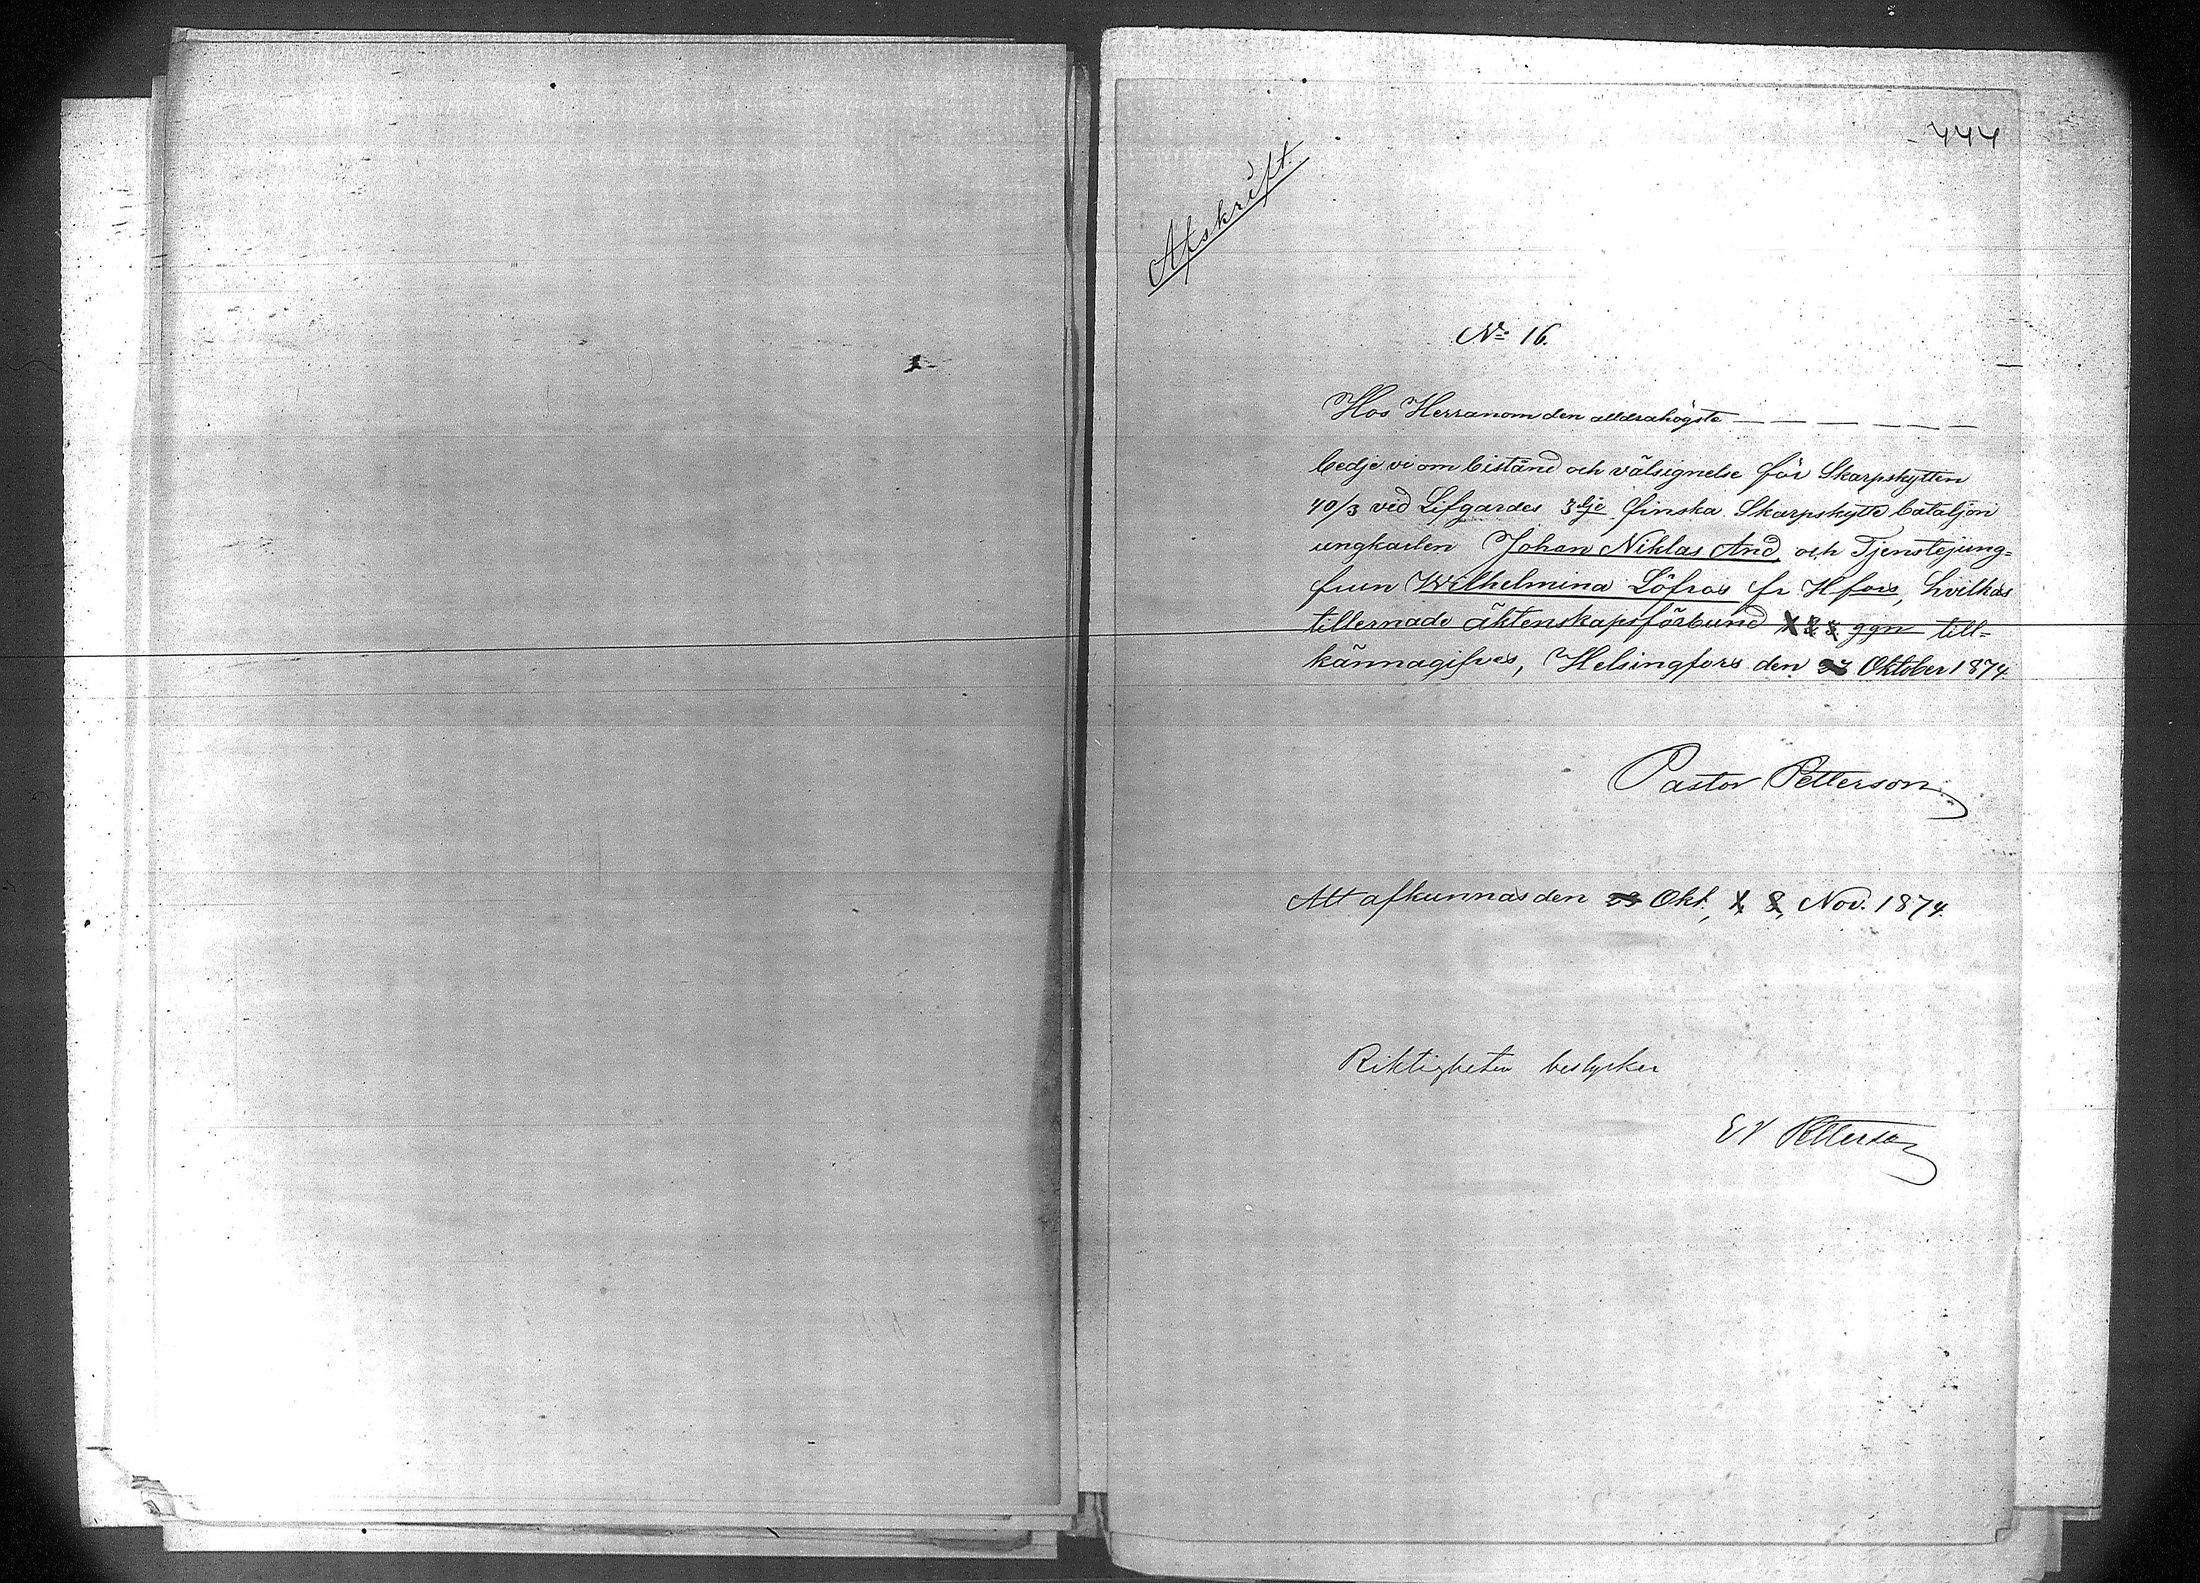 444
Afskrift.
No 16.
Hos Herranom den alldrahögste — — — — — —
bedje vi om bistånd och välsignelse för Skarpskytten
40/3 ved Lifgardes 3dje finska Skarpskytte bataljon
ungkarlen Johan Niklas And och Tjenstejung=
frun Wilhelmina Löfroos fr. H:fors, hvilkas
tillernade äktenskapsförbund ggn till=
kännagifves, Helsingfors den Oktober 1874.
Pastor Petterson.
Att afkunnas den Okt., 8, Nov. 1874.
Riktigheten bestyrker
EV Petterson